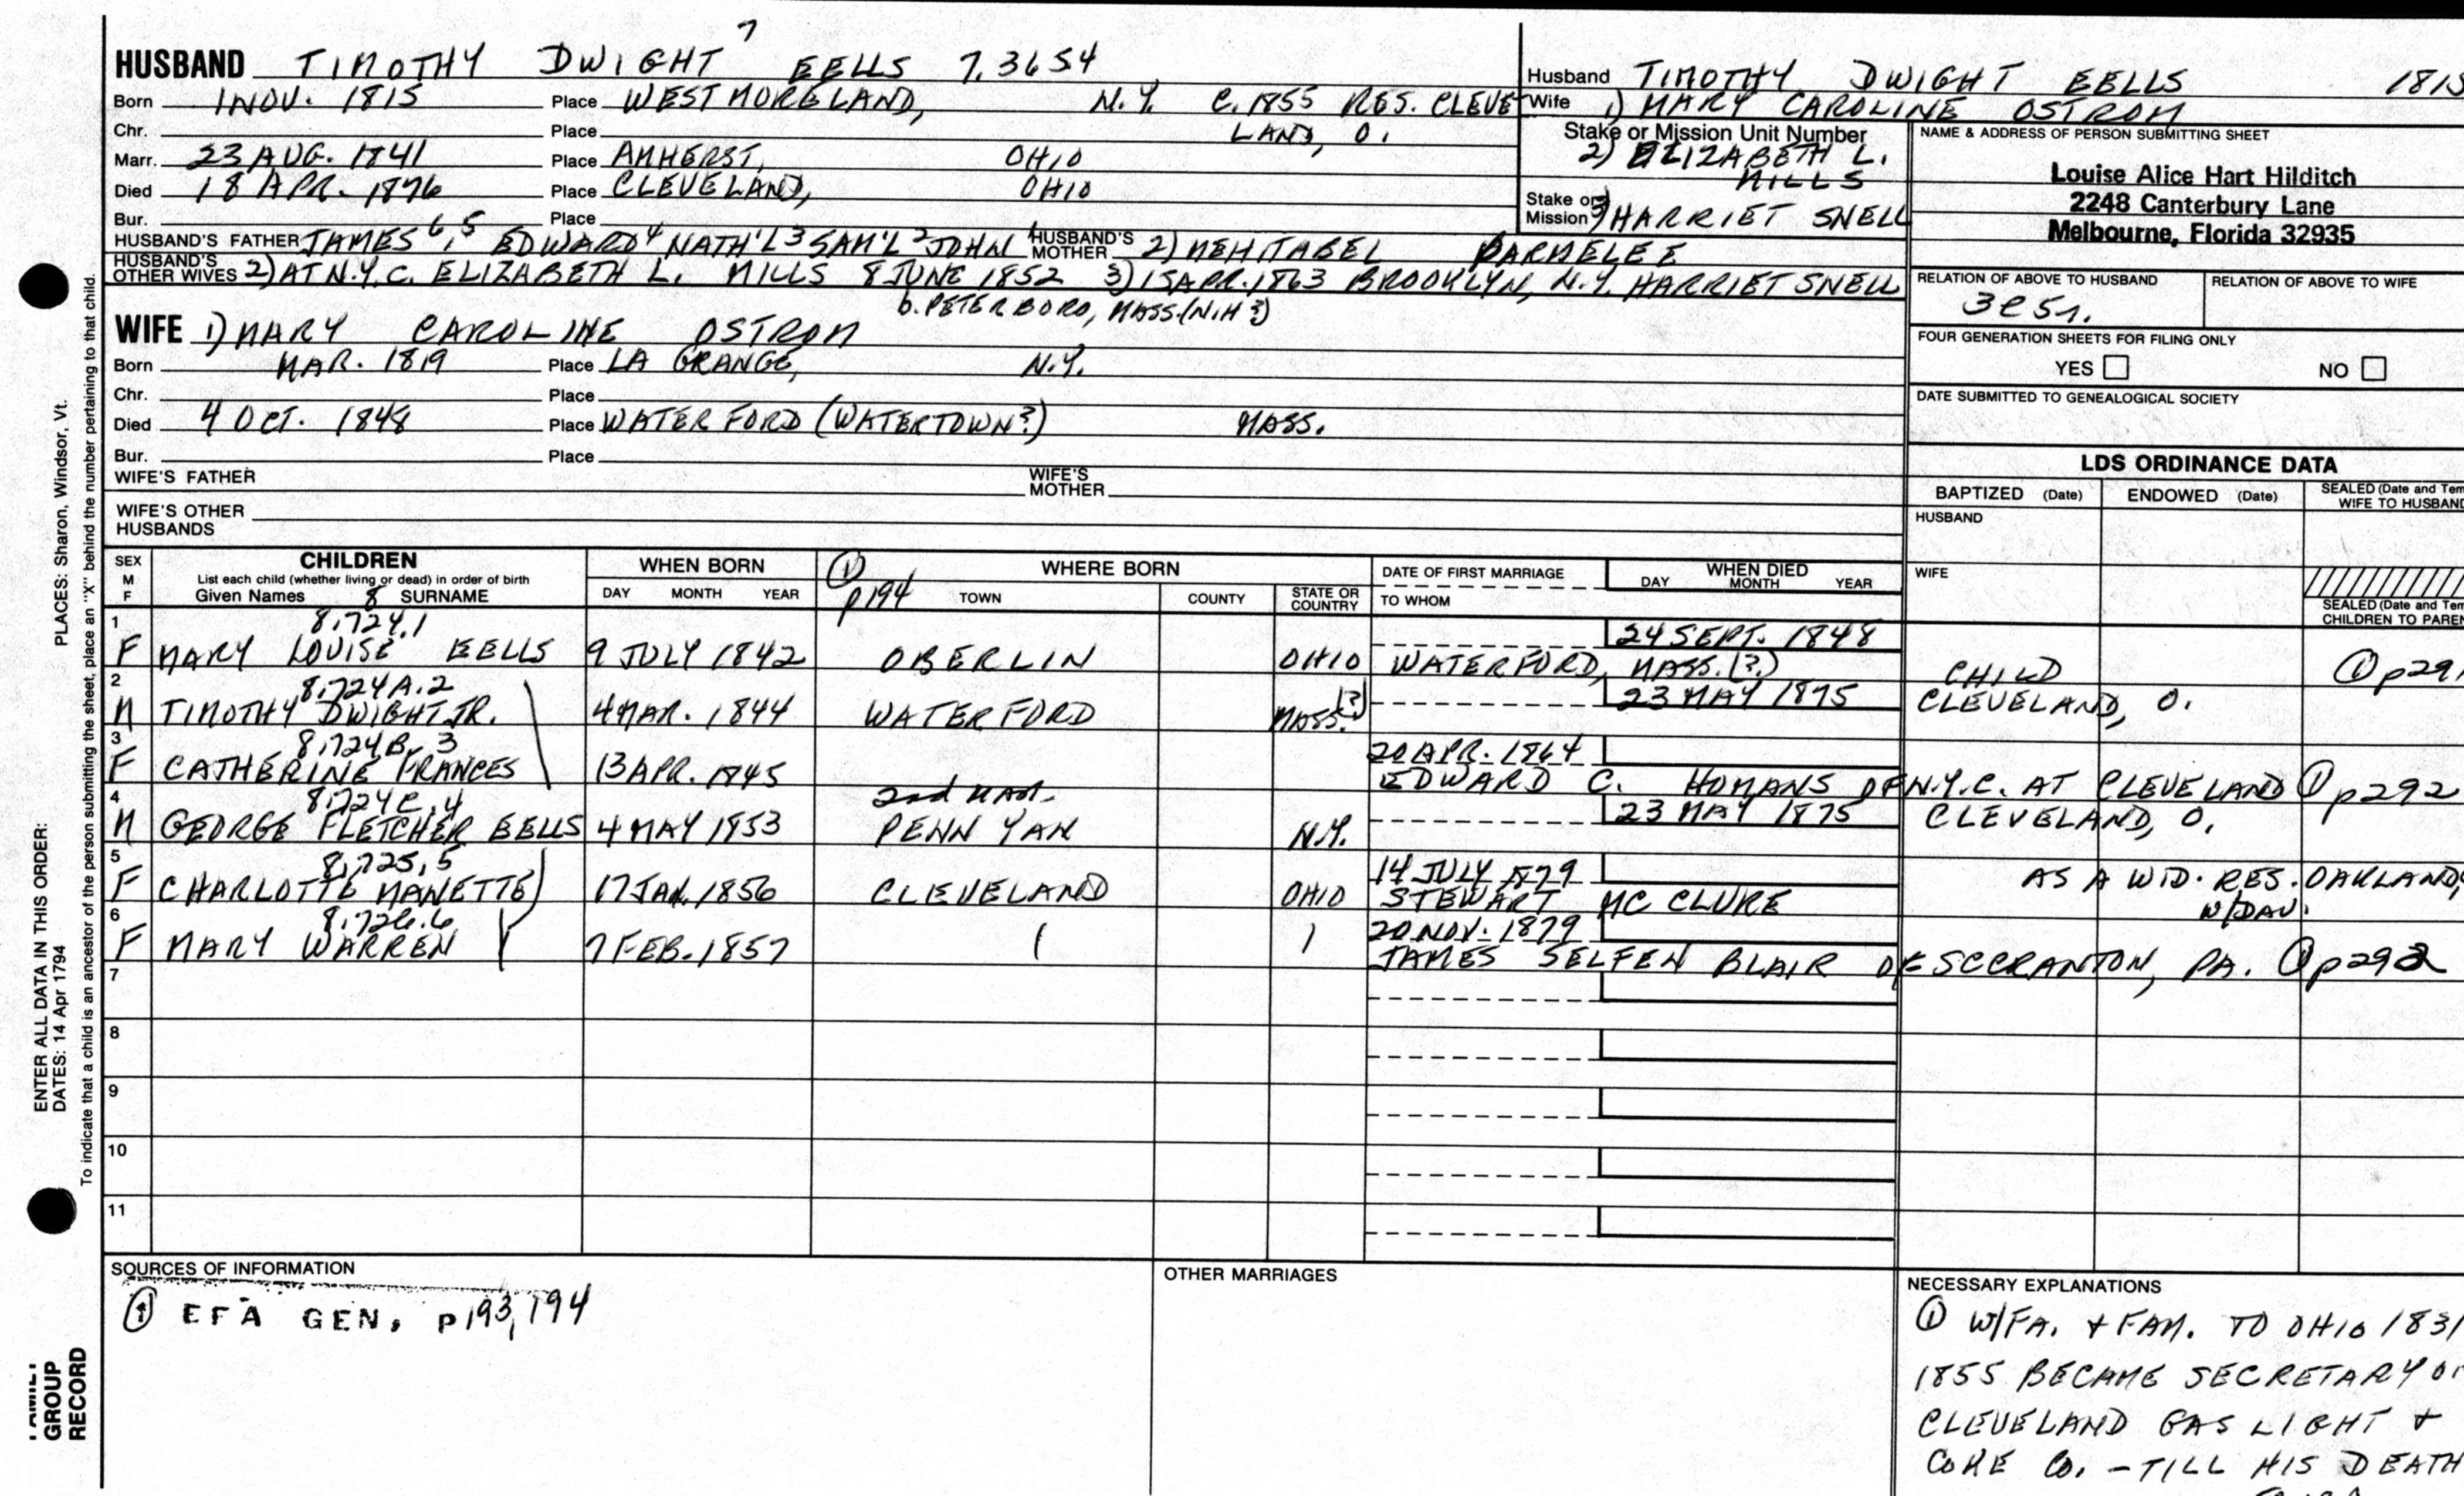 7
HUSBAND TIMOTHY DWIGHT EELLS 7.3654
Born 1 NOV. 1815 Place WESTMORELAND, N.Y. C. 1855 RES. CLEVE
Chr. Place LAND, O.
Marr. 23 AUG. 1841 Place AMHERST, OHIO
Died 18 APR. 1876 Place CLEVELAND, OHIO
Bur. Place
HUSBAND'S FATHER JAMES 6, 5 EDWARD 4 NATH'L 3 SAM'L 2 JOHN 1 HUSBAND'S MOTHER 2) MEHITABEL PARMELEE
HUSBAND'S OTHER WIVES 2) AT N.Y.C. ELIZABETH L. MILLS 8 JUNE 1852 3) 15 APR. 1863 BROOKLYN, N.Y. HARRIET SNELL
b. PETERBORO, MASS. (N.H ?)
WIFE 1) MARY CAROLINE OSTROM
Born MAR. 1819 Place LA GRANGE, N.Y.
Chr. Place
Died 4 OCT. 1848 Place WATERFORD (WATERTOWN?) MASS.
Bur. Place
WIFE'S FATHER WIFE'S MOTHER
WIFE'S OTHER HUSBANDS
Husband TIMOTHY DWIGHT EELLS 1815
Wife 1) MARY CAROLINE OSTROM
Stake or Mission Unit Number
2) ELIZABETH L.
MILLS
Stake or Mission 3) HARRIET SNELL
NAME & ADDRESS OF PERSON SUBMITTING SHEET
Louise Alice Hart Hilditch
2248 Canterbury Lane
Melbourne, Florida 32935
RELATION OF ABOVE TO HUSBAND RELATION OF ABOVE TO WIFE
FOUR GENERATION SHEETS FOR FILING ONLY
YES NO
DATE SUBMITTED TO GENEALOGICAL SOCIETY
LDS ORDINANCE DATA
BAPTIZED (Date) ENDOWED (Date) SEALED (Date and Tem
WIFE TO HUSBAND
HUSBAND
WIFE
SEALED (Date and Tem
CHILDREN TO PAREN
SEX M F CHILDREN WHEN BORN ① p194 WHERE BORN DATE OF FIRST MARRIAGE WHEN DIED
List each child (whether living or dead) in order of birth
Given Names 8 SURNAME DAY MONTH YEAR TOWN COUNTY STATE OR COUNTRY TO WHOM DAY MONTH YEAR
1 8,724.1 24 SEPT. 1848
F MARY LOUISE EELLS 9 JULY 1842 OBERLIN OHIO WATERFORD, MASS. (?) CHILD ① p291
2 8,724A.2 23 MAY 1875
M TIMOTHY DWIGHT JR. 4 MAR. 1844 WATERFORD MASS. (?) CLEVELAND, O.
3 8,724B.3 20 APR. 1864
F CATHERINE FRANCES 13 APR. 1845 EDWARD C. HOMANS OF N.Y.C. AT CLEVELAND ① p292
4 8,724C.4 2nd MAR. 23 MAY 1875
M GEORGE FLETCHER EELLS 4 MAY 1853 PENN YAN N.Y. CLEVELAND, O.
5 8,725.5 14 JULY 1879
F CHARLOTTE NANETTE 17 JAN. 1856 CLEVELAND OHIO STEWART MC CLURE AS A WID. RES. OAKLAND,
W/DAU.
6 8,726.6 20 NOV. 1879
F MARY WARREN 7 FEB. 1857 JAMES SELFEN BLAIR OF SCCRANTON, PA. ① p292
7
8
9
10
11
SOURCES OF INFORMATION
① EFA GEN, p193,194
OTHER MARRIAGES
NECESSARY EXPLANATIONS
① W/FA. & FAM. TO OHIO 1831
1855 BECAME SECRETARY OF
CLEVELAND GAS LIGHT &
COKE CO. - TILL HIS DEATH
PLACES: Sharon, Windsor, Vt.
ENTER ALL DATA IN THIS ORDER:
DATES: 14 Apr 1794
To indicate that a child is an ancestor of the person submitting the sheet, place an "X" behind the number pertaining to that child.
FAMILY
GROUP
RECORD